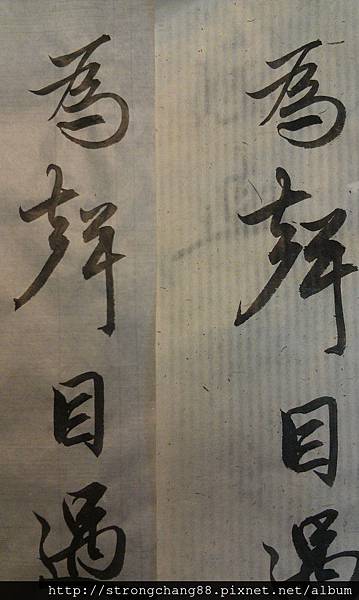 為聲目遇
為聲目遇
http://strongchang88.pixnet.net/album